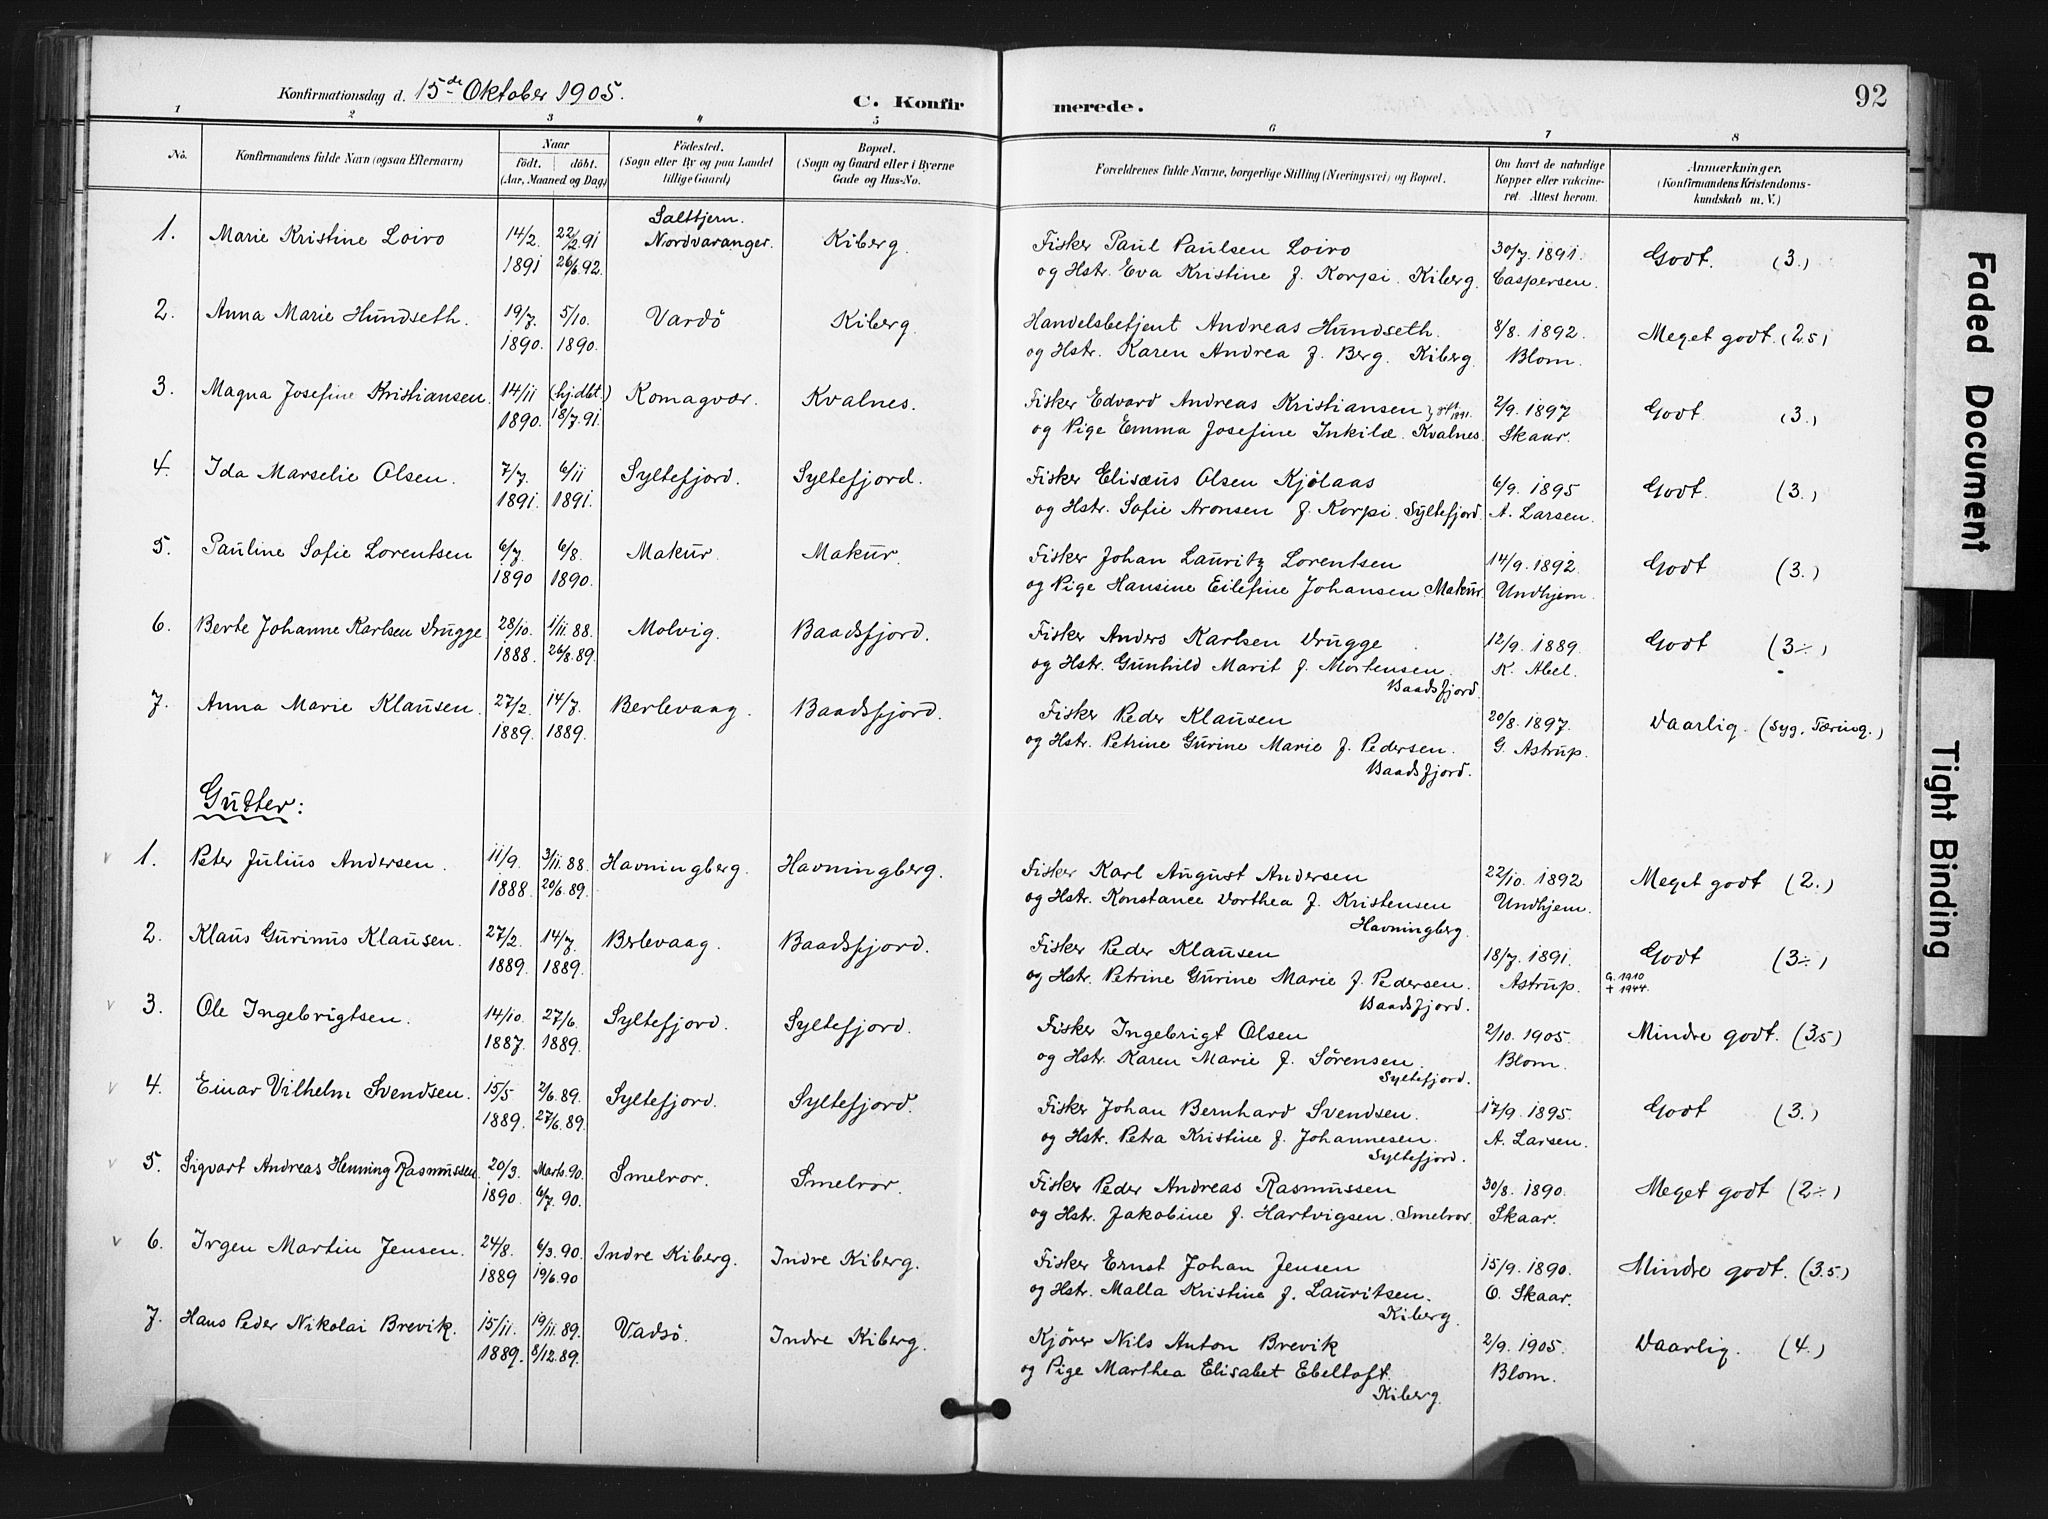 Konfirmationsdag d. 15de Oktober 1905.
C. Konfirmerede.
92
1 2 3 4 5 6 7 8
No. Konfirmandens fulde Navn (ogsaa Efternavn) Naar født. døbt. (Aar, Maaned og Dag) Fødested. (Sogn eller By og paa Landet tillige Gaard) Bopæl. (Sogn og Gaard eller i Byerne Gade og Hus-No. Forældrenes fulde Navne, borgerlige Stilling (Næringsvei) og Bopæl. Om havt de naturlige Kopper eller vakcineret. Attest herom. Anmærkninger. (Konfirmandens Kristendomskundskab m. V.)
1. Marie Kristine Loiro 14/2. 1891 22/2.91 26/6.92. Saltjern. Nordvaranger. Kiberg. Fisker Paul Paulsen Loiro 30/7. 1891. Godt. (3.)
og Hstr. Eva Kristine f. Korpi. Kiberg. Caspersen.
2. Anna Marie Hundseth. 19/7. 1890. 5/10. 1890. Vardö Kiberg. Handelsbetjent Andreas Hundseth. 8/8. 1892. Meget godt. (2.5)
og Hstr. Karen Andrea f. Berg. Kiberg. Blom.
3. Magna Josefine Kristiansen. 14/11 1890. (hj.dbt.) 18/7.91. Komagvær. Kvalnes. Fisker Edvard Andreas Kristiansen 2/9. 1897 Godt. (3.)
og Pige Emma Josefine Inkilæ. Kvalnes. Skaar.
4. Ida Marselie Olsen. 7/7. 1891. 6/11 1891. Syltefjord. Syltefjord. Fisker Elisæus Olsen Kjölaas 6/9. 1895 Godt. (3.)
og Hstr. Sofie Aronsen f. Korpi. Syltefjord. A. Larsen.
5. Pauline Sofie Lorentsen 6/7. 1890 6/8. 1890. Makur. Makur. Fisker Johan Lauritz Lorentsen 14/9. 1892. Godt (3.)
og Pige Hansine Eilefine Johansen. Makur. Undhjem.
6. Berte Johanne Karlsen Drugge 28/10. 1888. 1/11.88. 26/8.89. Molvig. Baadsfjord. Fisker Anders Karlsen Drugge 12/9. 1889. Godt (3÷)
og Hstr. Gunhild Marit f. Mortensen. K. Abel.
Baadsfjord.
7. Anna Marie Klausen. 27/2. 1889. 14/7. 1889. Berlevaag. Baadsfjord. Fisker Peder Klausen 20/8. 1897. Daarlig. (syg, Tæring.)
og Hstr. Petrine Gurine Marie f. Pedersen. G. Astrup.
Baadsfjord.
Gutter:
1. Peter Julius Andersen. 11/9. 1888. 3/11.88. 20/6.89. Havningberg. Havningberg. Fisker Karl August Andersen 22/10. 1892 Meget godt (2.)
og Hstr. Konstance Dorthea f. Kristensen Undhjem.
Havningberg.
2. Klaus Gurinus Klausen. 27/2. 1889. 14/7. 1889. Berlevaag. Baadsfjord. Fisker Peder Klausen 18/7. 1891. Godt (3÷)
og Hstr. Petrine Gurine Marie f. Pedersen. Astrup. G. 1910 † 1944.
Baadsfjord.
3. Ole Ingebrigtsen. 14/10. 1887. 27/6. 1889. Syltefjord. Syltefjord. Fisker Ingebrigt Olsen 2/10. 1905. Mindre godt. (3.5)
og Hstr. Karen Marie f. Sörensen. Blom.
Syltefjord.
4. Einar Vilhelm Svendsen. 15/5 1889. 2/6.89. 27/6.89. Syltefjord. Syltefjord. Fisker Johan Bernhard Svendsen. 17/9. 1895. Godt (3.)
og Hstr. Petra Kristine f. Johannesen. A. Larsen.
Syltefjord.
5. Sigvart Andreas Henning Rasmussen. 20/3. 1890. Marts.90. 6/7. 90. Smelror. Smelror. Fisker Peder Andreas Rasmussen 30/8. 1890. Meget godt (2÷)
og Hstr. Jakobine f. Hartvigsen. Smelror. Skaar.
6. Irgen Martin Jensen. 24/8. 1889 6/3.90. 19/6.90 Indre Kiberg. Indre Kiberg. Fisker Ernst Johan Jensen 15/9. 1890. Mindre godt. (3.5.)
og Hstr. Malla Kristine f. Lauritsen. O. Skaar.
Kiberg.
7. Hans Peder Nikolai Brevik. 15/11. 1889. 19/11.89. 8/12.89. Vadsö. Indre Kiberg. Kjörer Nils Anton Brevik 2/9. 1905. Daarlig. (4.)
og Pige Marthea Elisabet Ebeltoft. Blom.
Kiberg.
Faded Document
Tight Binding